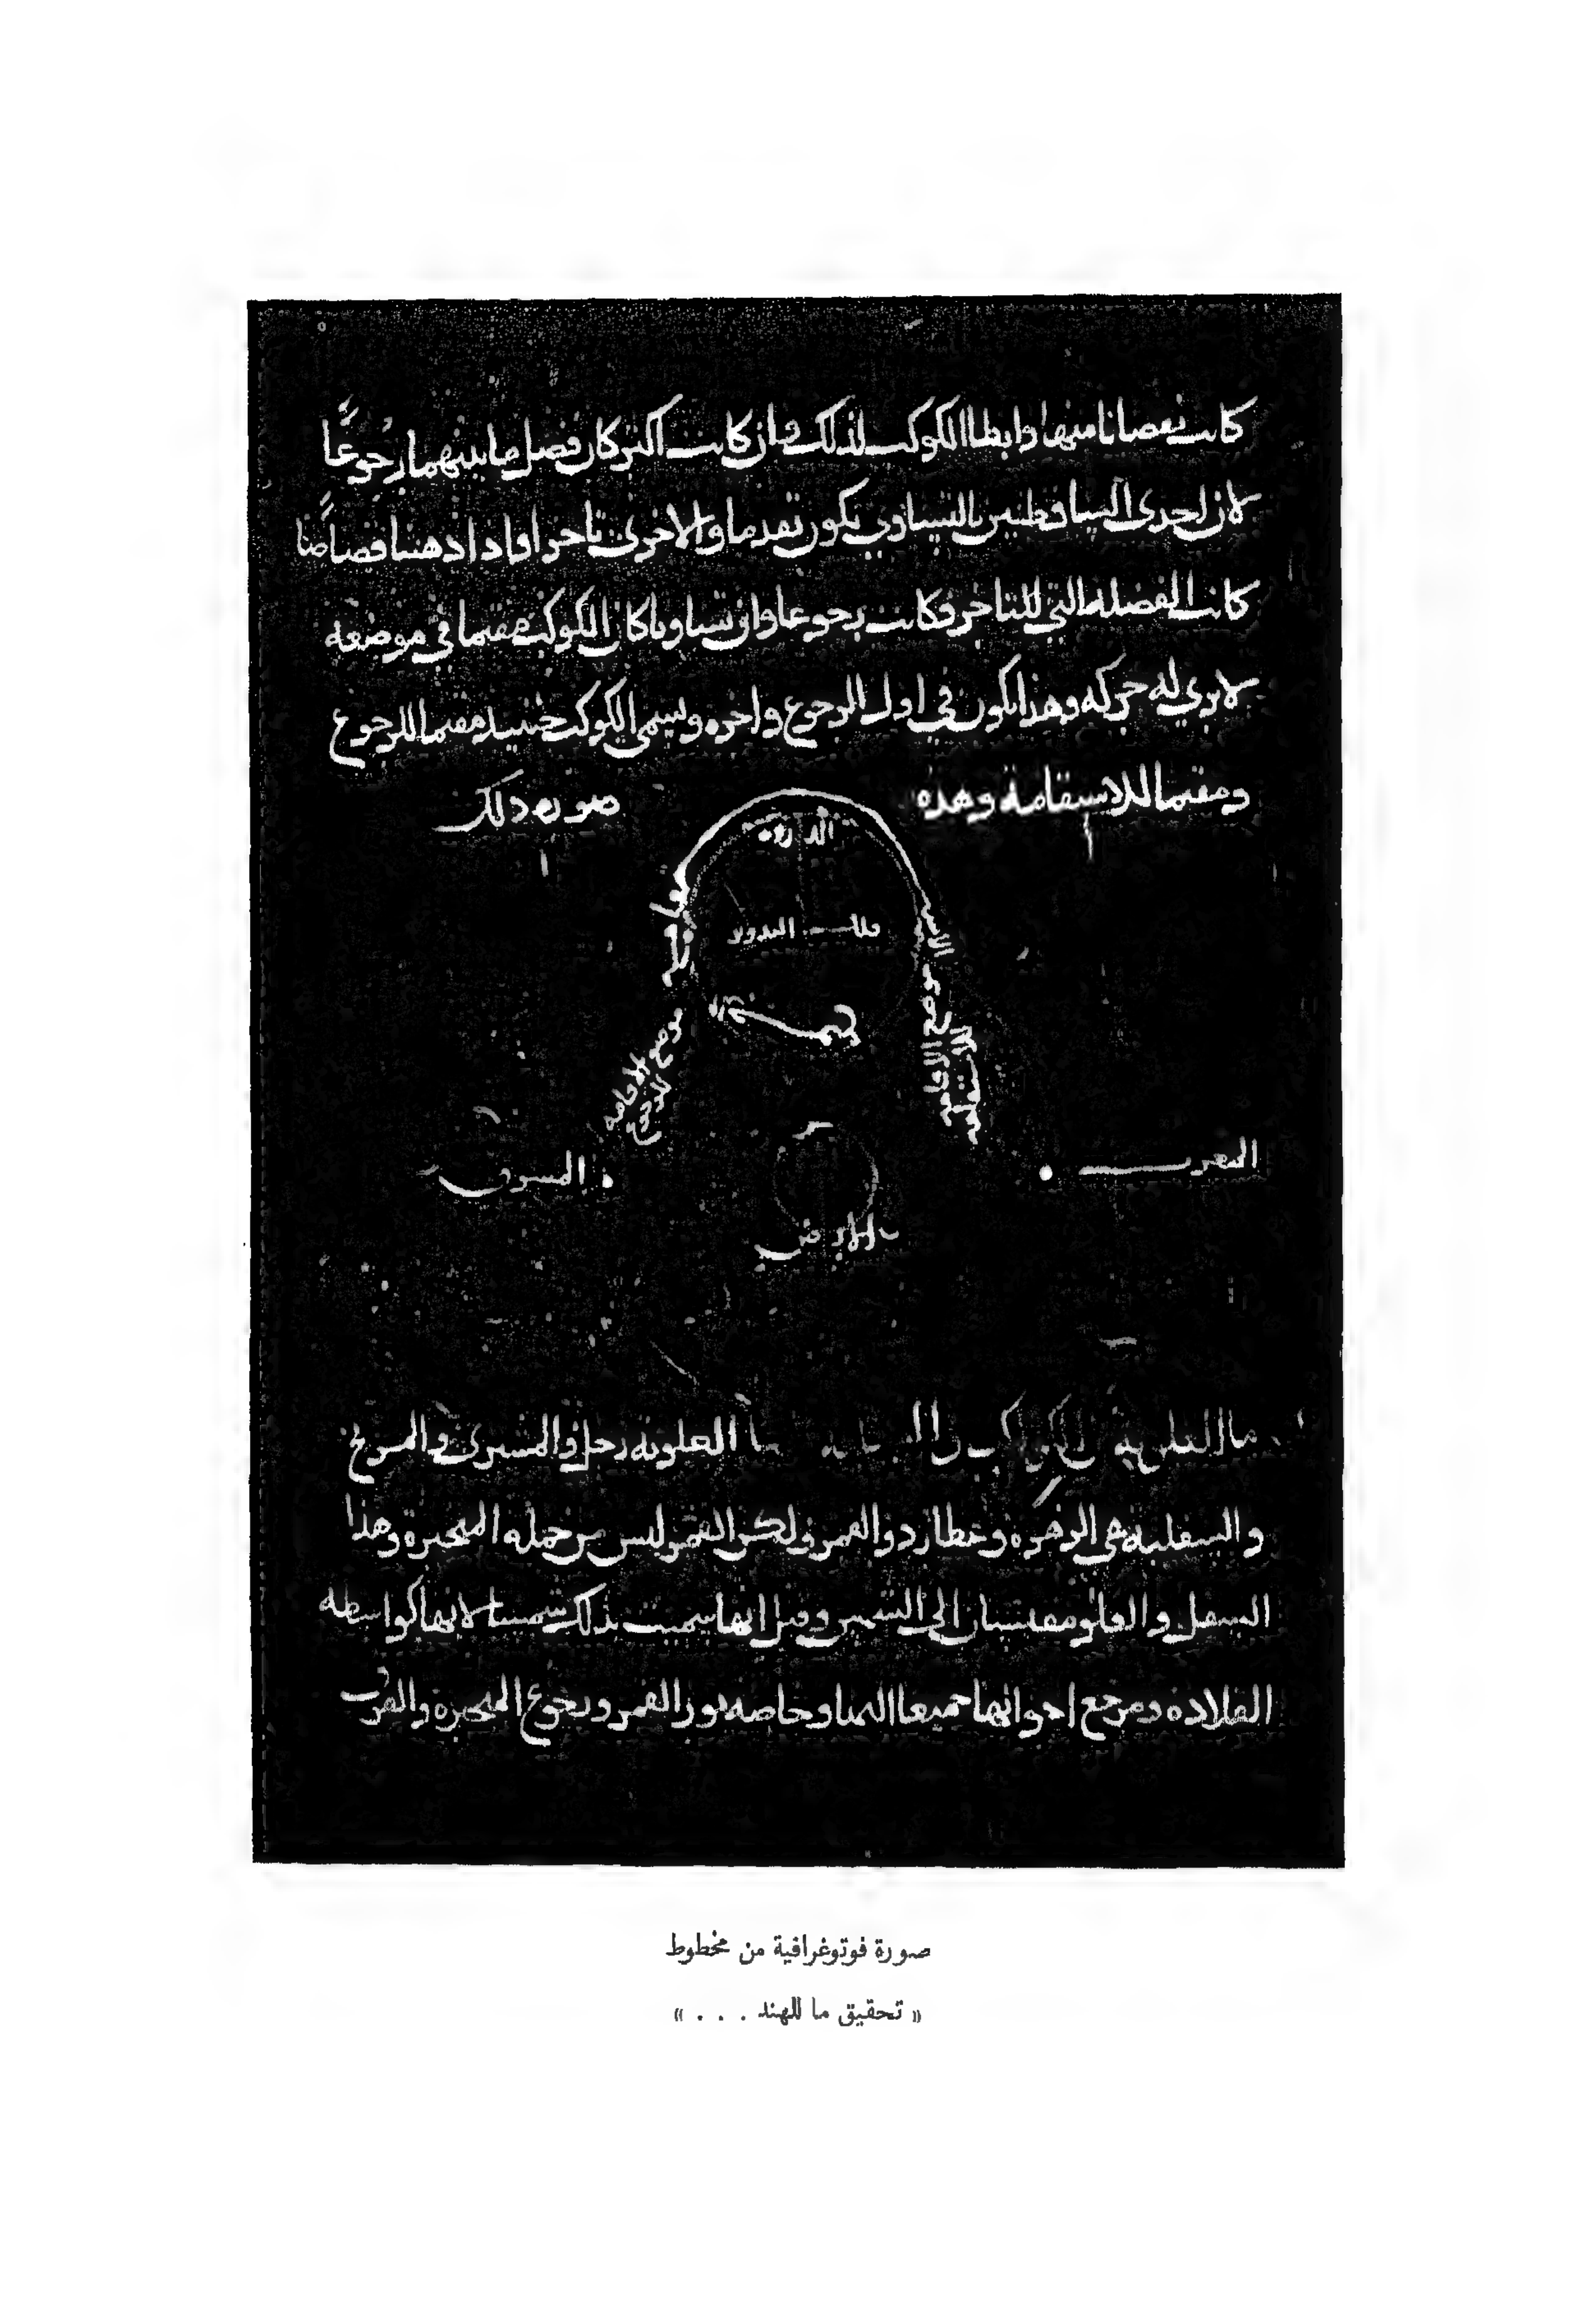 كانت نقصانا منها وابطا الكوكب لذلك وان كانت اكثر كان فصل ما بينهما رجوعًا
لان احدى المسافتين بالتساوي يكون تقدما والاخرى تاخرا فاذا ذهبتا قصاصًا
كانت الفضلة التي للتاخر وكانت رجوعا وان تساويا كان الكوكب مقيما في موضعه
لا يرى له حركة وهذا يكون في اول الرجوع واخره ويسمى الكوكب حينيذ مقيما للرجوع
ومقيما للاستقامة وهذه صورة ذلك
الذروة
فلك التدوير
موضع الاقامة للرجوع
موضع الاقامة للاستقامة
المغرب
المشرق
الارض
ما العلوية من الكواكب و العلوية زحل والمشترى والمريخ
والسفلية هي الزهرة وعطارد والقمر ولكن القمر ليس من جملة المتحيرة وهذا
السفل والعلو مقيسان الى الشمس وقيل انها سميت بذلك شمسا لانها كواسطة
القلادة ومرجع احوالها جميعا اليها وخاصة نور القمر ورجوع المتحيرة والقرب
صورة فوتوغرافية من مخطوط
« تحقيق ما للهند . . . »